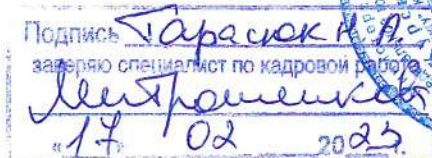 Подпись Тарасюк Н.А.
заверяю специалист по кадровой работе
Митрошенкова
«17» 02 2023.